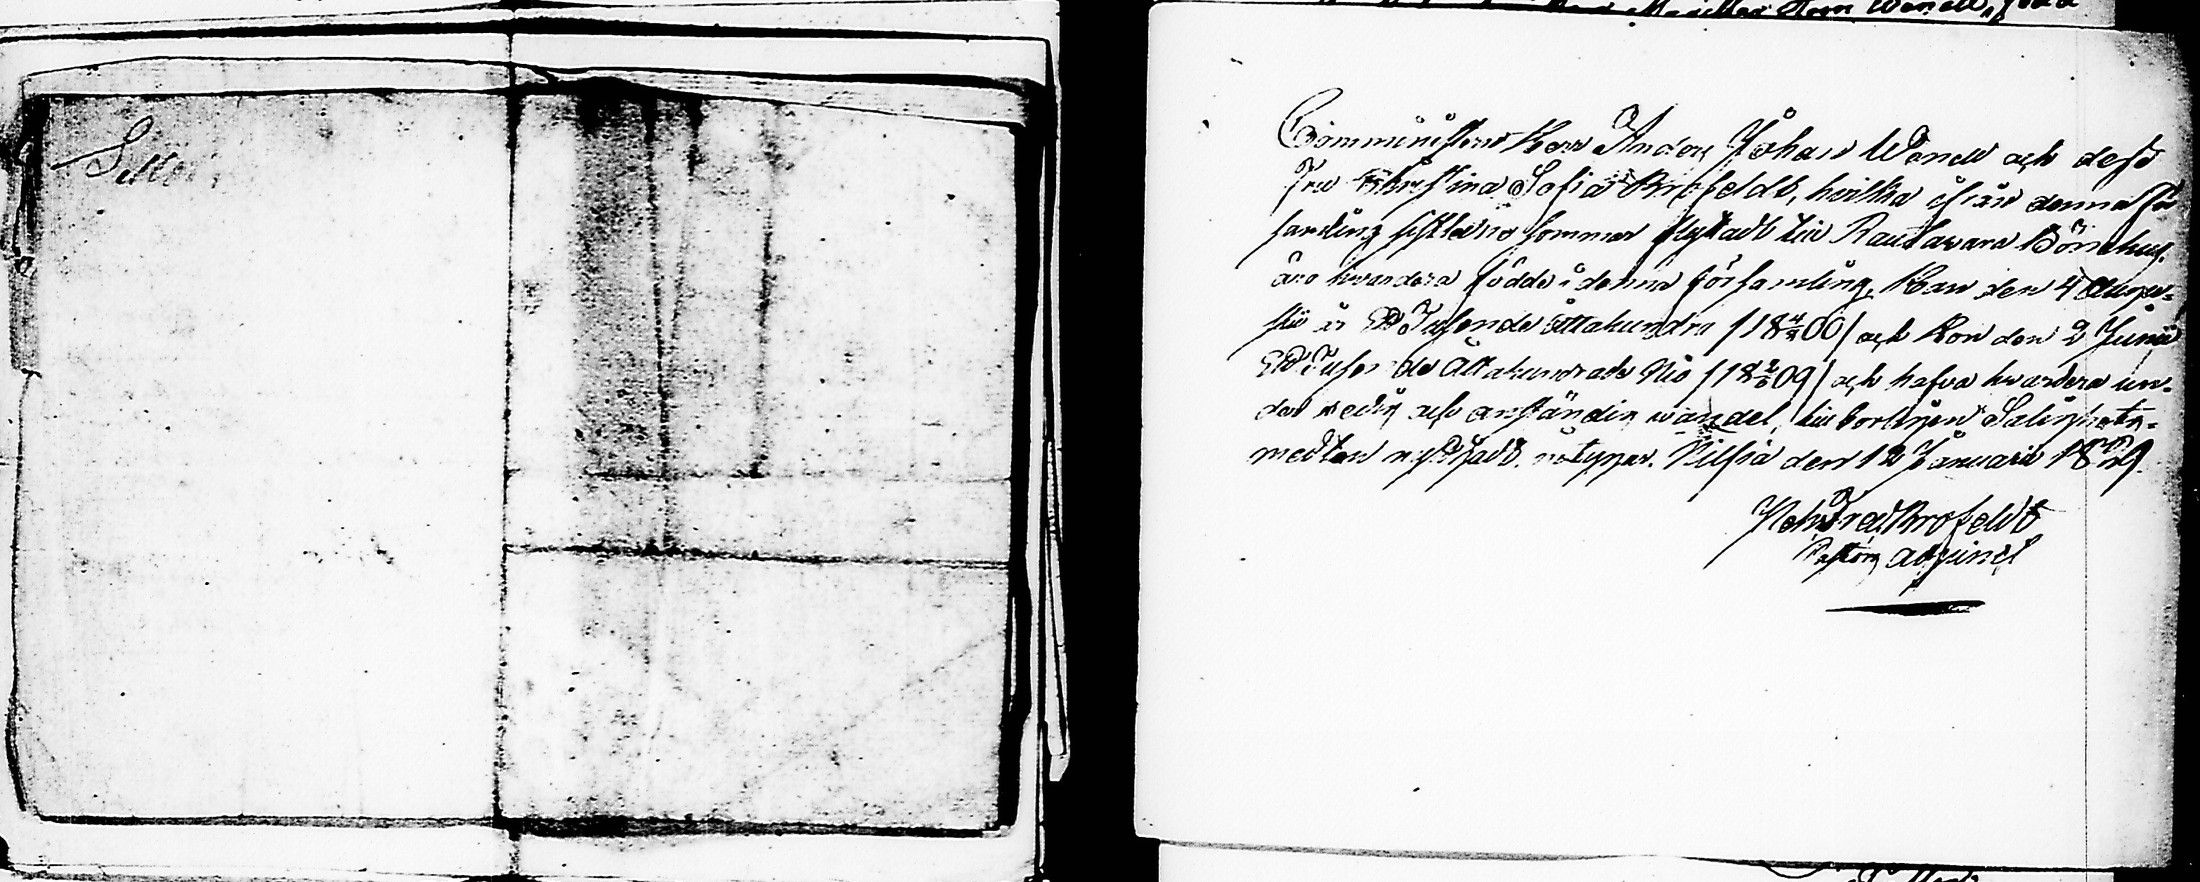 Comministern Herr Anders Johan Wenell och dess
Fru Christina Sofia Brofeldt, hvilka ifrån denna För
samling sistledne sommar flyttadt till Rautavara Bönehus,
äro hvardera födde i denna församling, Han den 4 Augu-
sti år Ett Tusende åttahundra /18 4/8 00/ och Hon den 2 Junii
Ett Tusende Åttahundrade Nio /18 2/6 09/ och hafva hvardera un-
der och anständig wandel, till borgen Salighets-
medlen Nilsiä den 12 Januarii 1829.
Brofeldt
Pastors adjunct